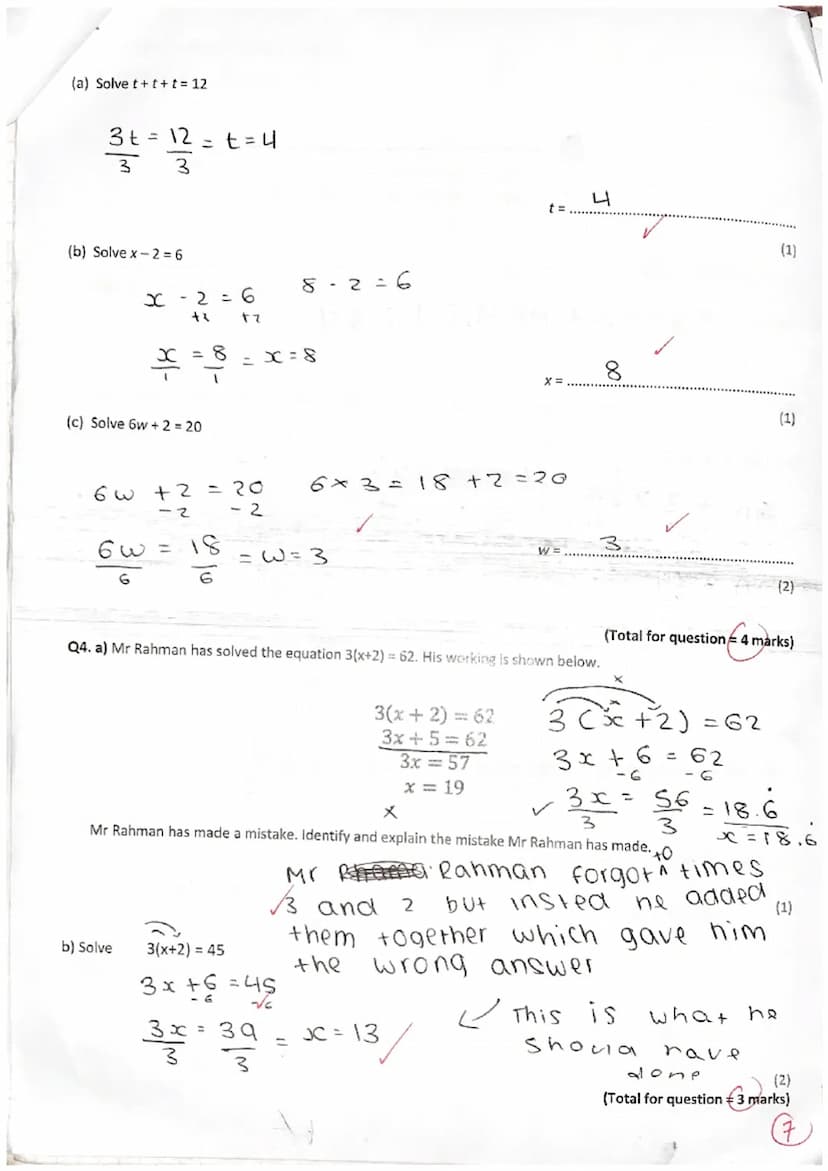 (a) Solve t + t + t = 12
3t = 12 = t = 4
3 3
t = 4
(1)
(b) Solve x – 2 = 6
x - 2 = 6 8 - 2 = 6
+2 +2
x = 8 = x = 8
1 1
x = 8
(1)
(c) Solve 6w + 2 = 20
6w + 2 = 20 6 x 3 = 18 + 2 = 20
-2 -2
6w = 18 = w = 3
6 6
w = 3
(2)
(Total for question = 4 marks)
Q4. a) Mr Rahman has solved the equation 3(x+2) = 62. His working is shown below.
3(x + 2) = 62
3x + 5 = 62
3x = 57
x = 19
x
3 (x + 2) = 62
3x + 6 = 62
-6 -6
3x = 56 = 18.6̇
3 3 x = 18.6̇
Mr Rahman has made a mistake. Identify and explain the mistake Mr Rahman has made.
Mr Rahman forgot to times
3 and 2 but insted he added
them together which gave him
the wrong answer
(1)
b) Solve 3(x+2) = 45
3x + 6 = 45
-6 -6
3x = 39 = x = 13
3 3
This is what he
should have
done
(2)
(Total for question = 3 marks)
7